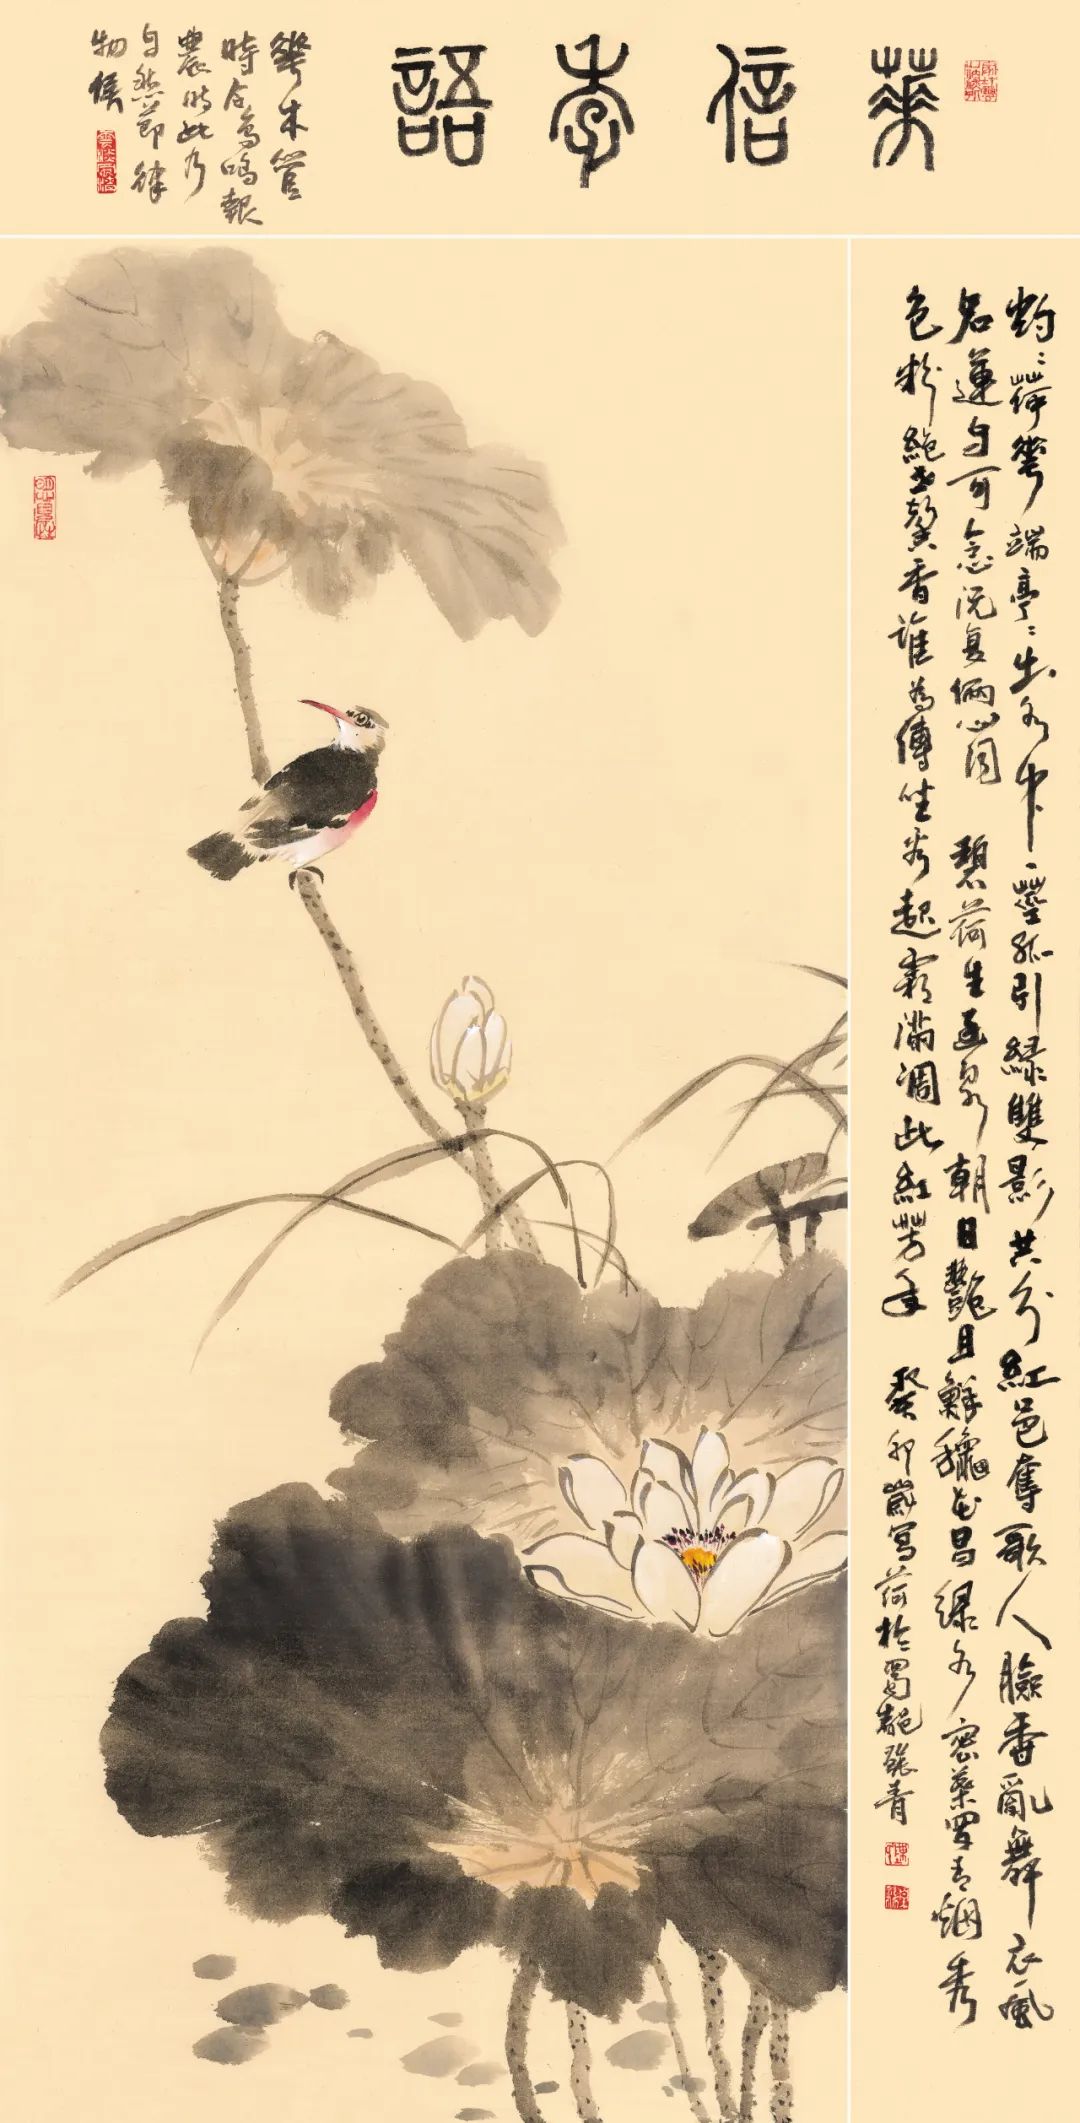 華信季語
華木管
時令鳥鳴報
農時此乃
自然節律
物候
灼灼荷華端亭亭出水中一莖孤引綠雙影共分紅色奪歌人臉香亂舞衣風
名蓮自可念況復倆心同 碧荷生幽泉朝日艷且鮮龝花冒綠水密葉羅青煙秀
色粉絕世馨香誰為傳坐看飛霜滿凋此紅芳年 癸卯歲寫荷於蜀都張青